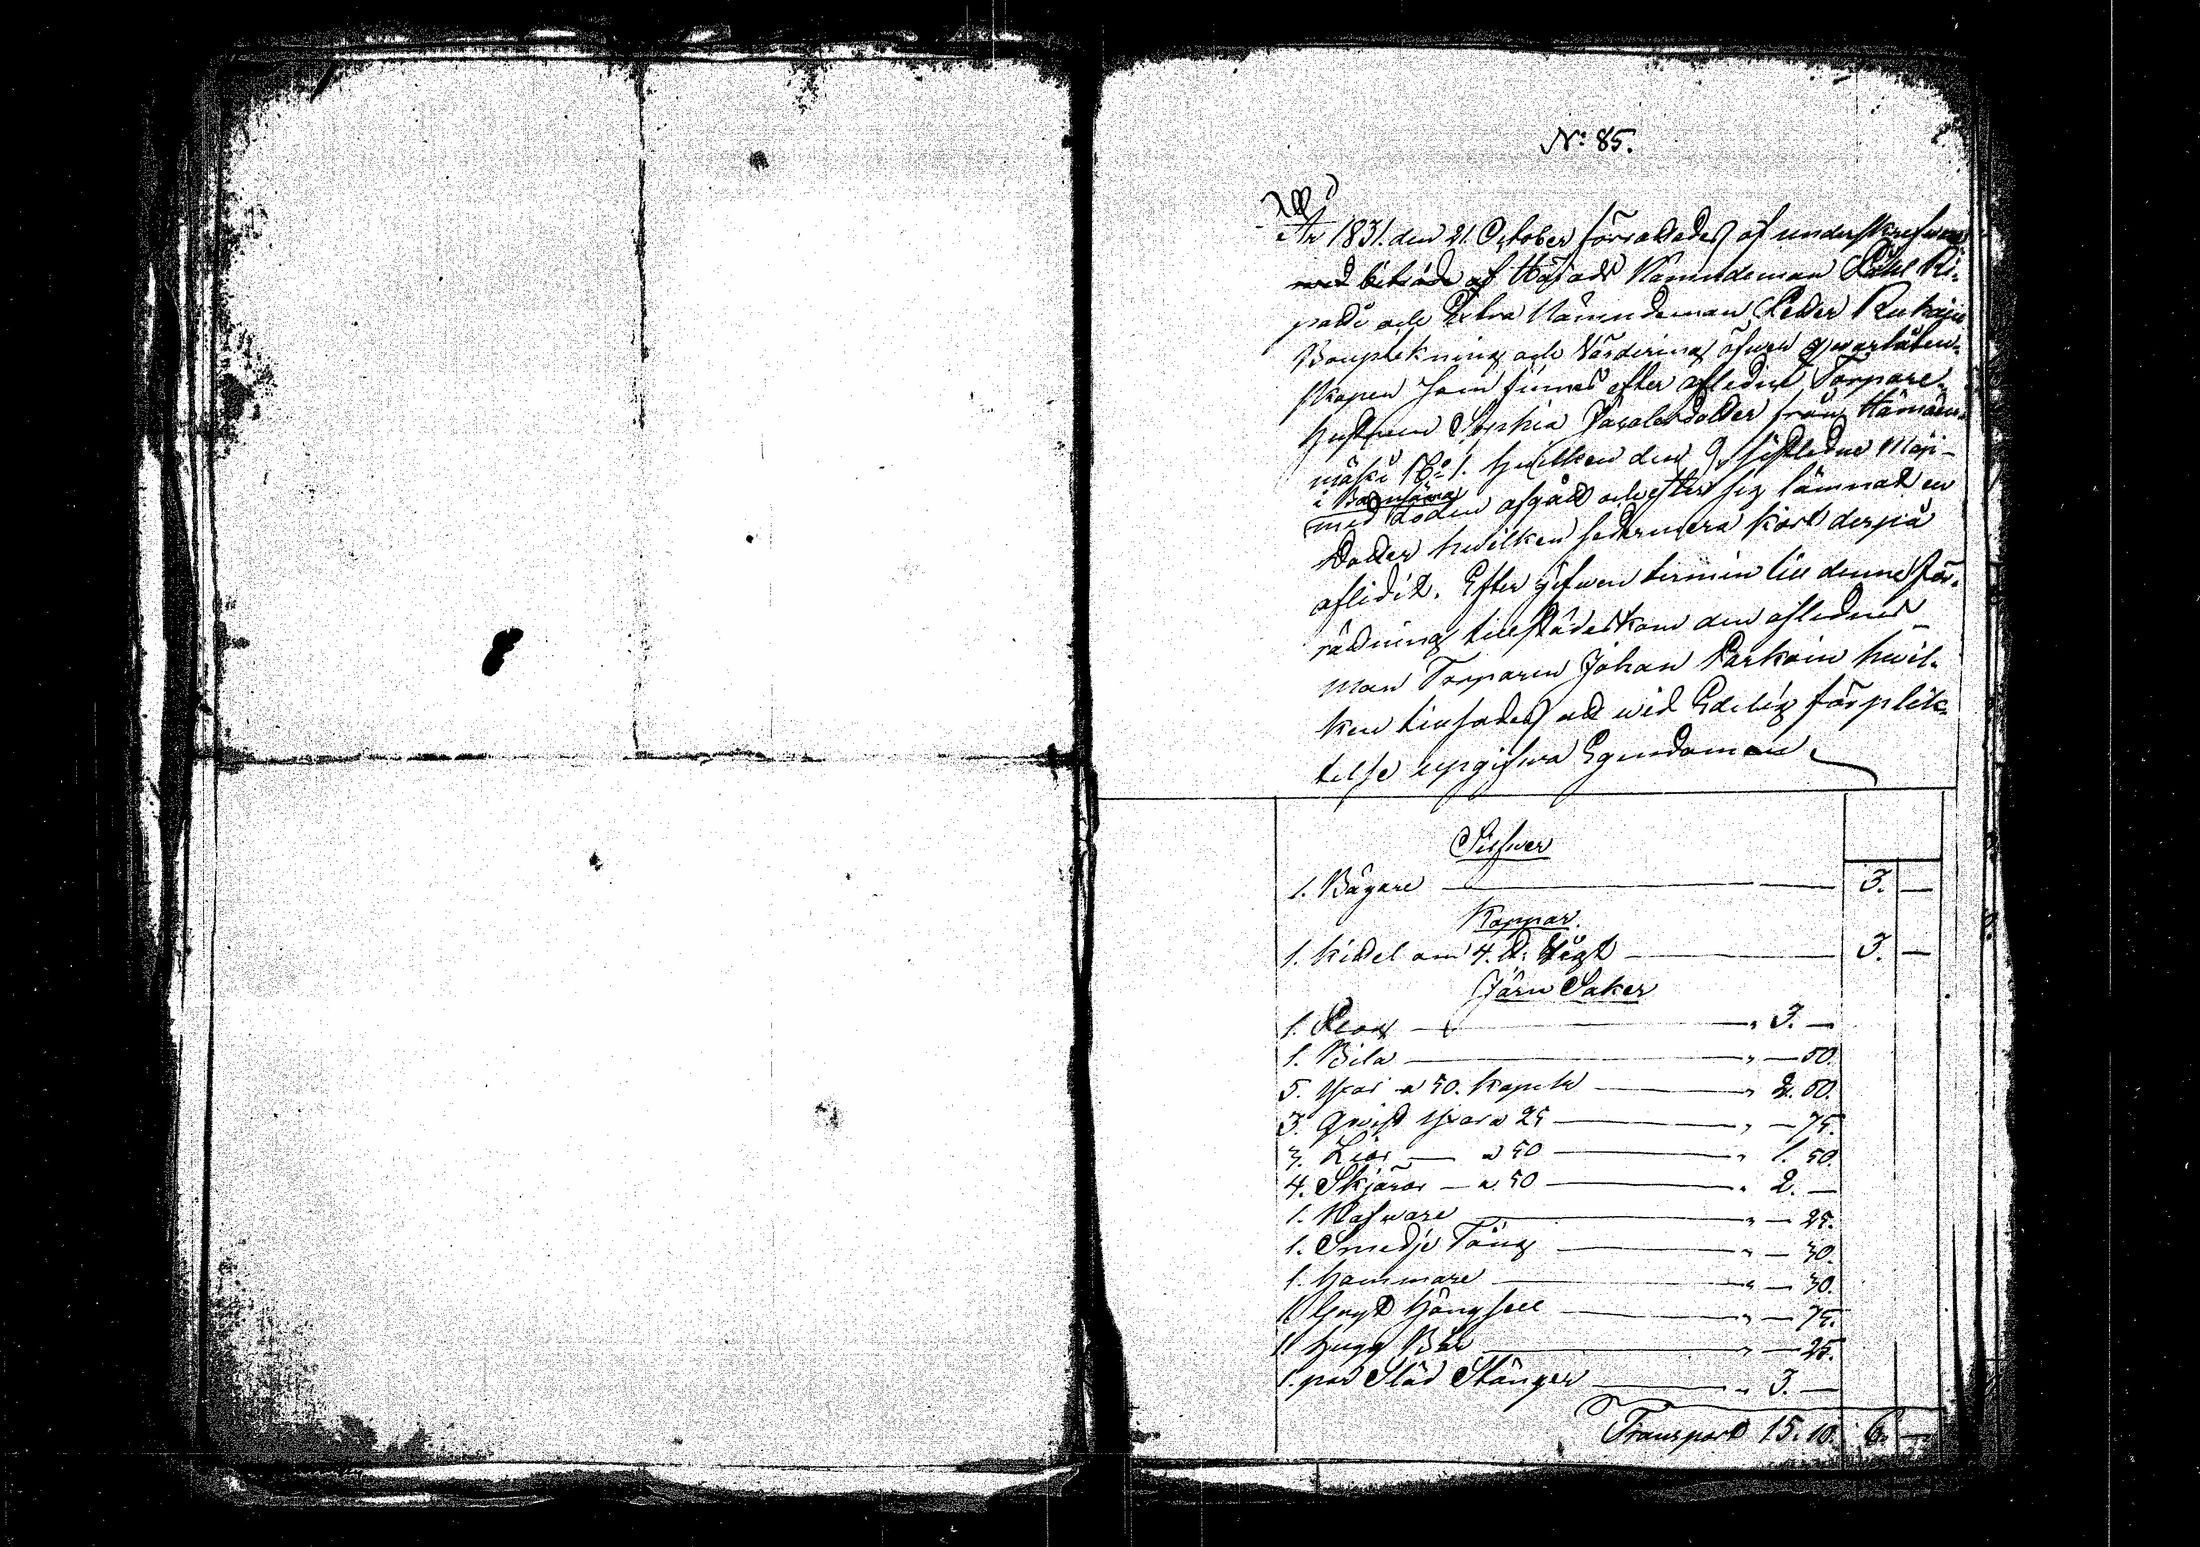 No: 85.
År 1831. den 21. October förrättades af underskrefwen
med biträde af Härads Nämndeman Påhl Ri-
patti och Extra Nämndeman Petter Ruko
Bouptekning och Värdering öfwer qwarlåten-
skapen som finnes efter afledne Torpare
hustrun Sophia Pavalsdotter från Hämäen-
mäki No: 1. hwilken den 9. sistledne Maji
i Barnsäng
med döden afgått och efter sig lämnat en
dotter hwilken sedermera kort derpå
aflidit. Efter gifwen termin till denne för-
rättning tillstädeskom den aflednes
man Torparen Johan Parkoin hwil-
ken tillsades att wid Edelig förplik-
telse upgifwa Egendomen
Silfwer
1. Bägare 3. —
Koppar.
1. kittel om 4. ℔: Vigt 3. —
Järn Saker
1. Plog " 3. —
1. Bila " — 50.
5. Yxor a 50. kopek " 2. 50.
3. Qwist Yxor a 25 " — 75.
3. Liar — a 50 " 1. 50.
4. Skjäror — a 50 " 2. —
1. Nafware " — 25.
1. Smedje Tång " — 30.
1. hammare " — 30.
1 Gryt hängsell " — 75.
1 hugg " — 25.
1. par Släd Stänger " 3. —
Transport 15. 10. 6. —